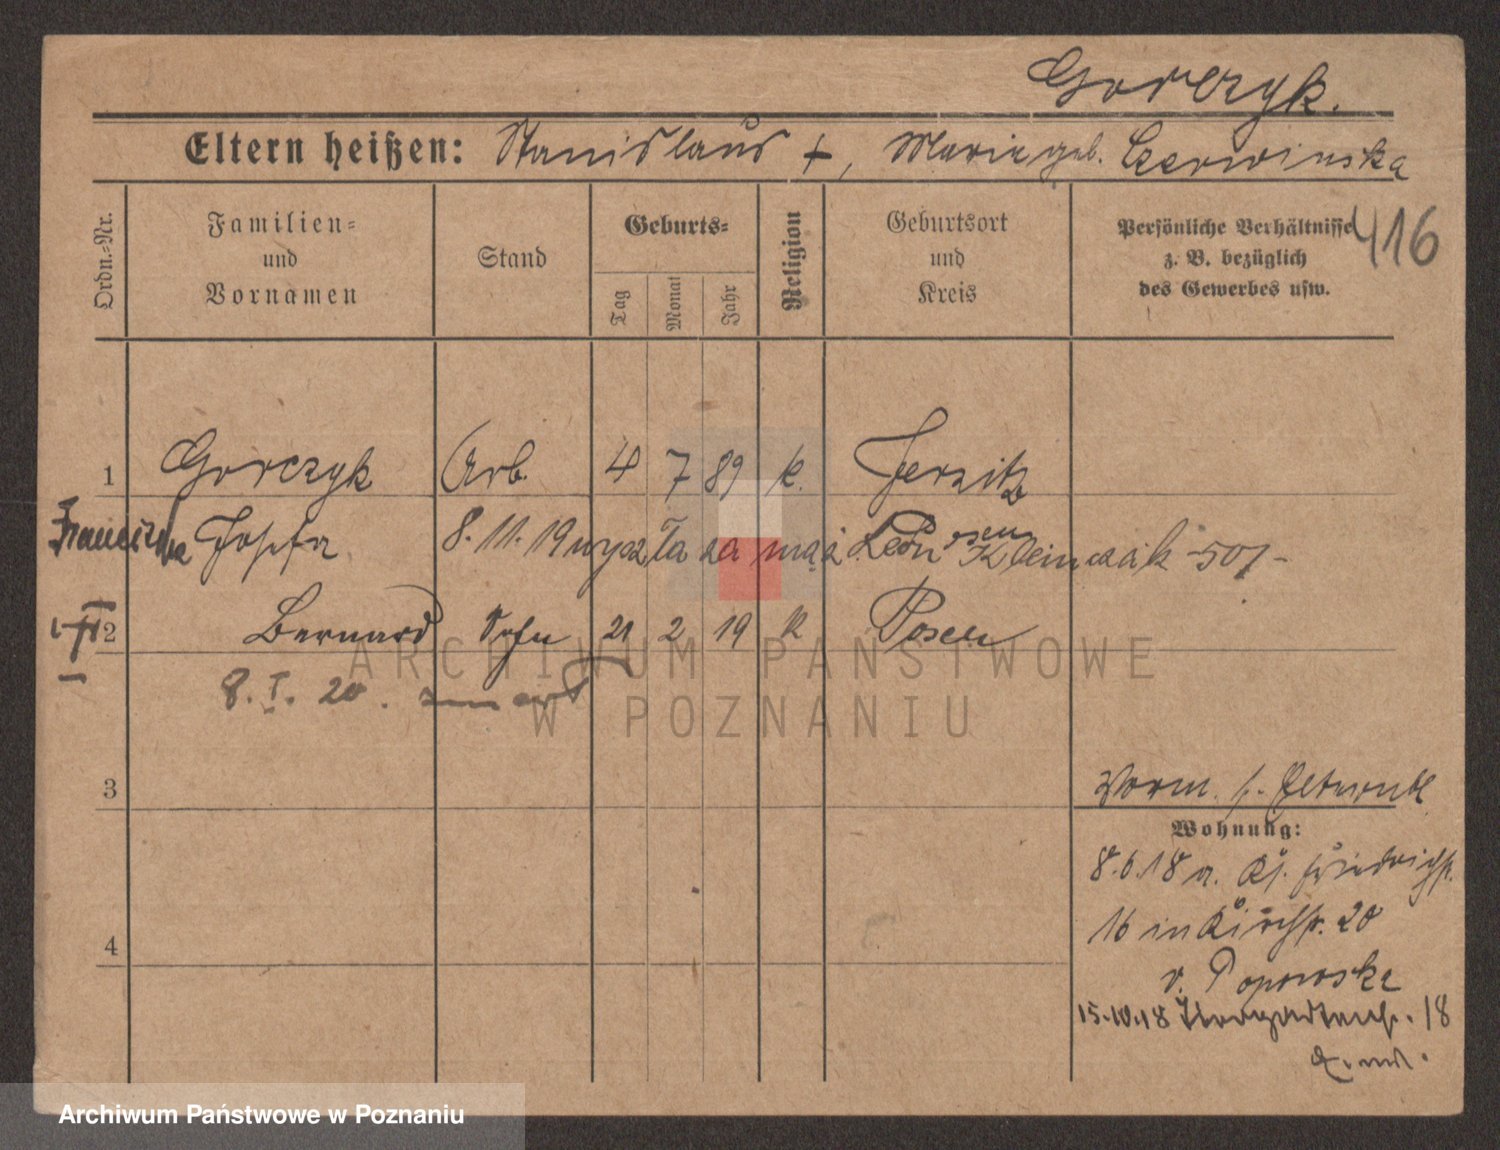 Gorczyk.
Eltern heißen: Stanislaus +, Marie geb. Czerwinska
Ordn.-Nr.
Familien= und Vornamen
Stand
Geburts=
Tag
Monat
Jahr
Religion
Geburtsort und Kreis
Persönliche Verhältnisse z. B. bezüglich des Gewerbes usw.
416
1 Gorczyk Arb. 4 7 89 k. Jersitz
Franciszka Josefa 8. 11. 19 wyszła za mąż Leon Klemczak -501-
Posen
2 Bernard Sohn 21 2 19 k Posen
8. I. 20. zmarł
3
Vorm. s.
Wohnung:
8.6.18 a. Friedrichstr.
16 in Kirchstr. 20
v. Popowska
15.10.18 18
4
ARCHIWUM PAŃSTWOWE
W POZNANIU
Archiwum Państwowe w Poznaniu